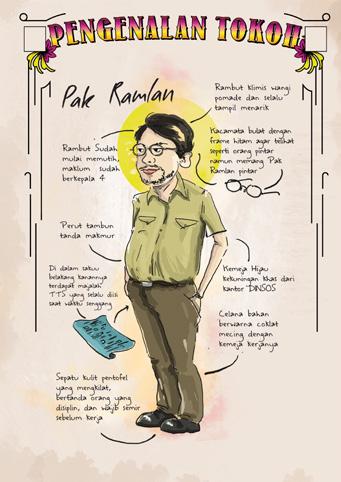 PENGENALAN TOKOH
Pak Ramlan
Rambut Klimis wangi
pomade dan selalu
tampil menarik
Rambut Sudah
mulai memutih,
maklum sudah
berkepala 4
Kacamata bulat dengan
frame hitam agar telihat
seperti orang pintar
namun memang Pak
Ramlan pintar
Perut tambun
tanda makmur
Di dalam sakuu
belakang kanannya
terdapat majalah
TTS yang selalu diisi
saat waktu senggang
Kemeja Hijau
kekuningan khas dari
kantor DINSOS
Celana bahan
berwarna coklat
mecing dengan
kemeja kerjanya
Sepatu kulit pentofel
yang mengkilat,
bertanda orang yang
disiplin, dan wajib semir
sebelum kerja